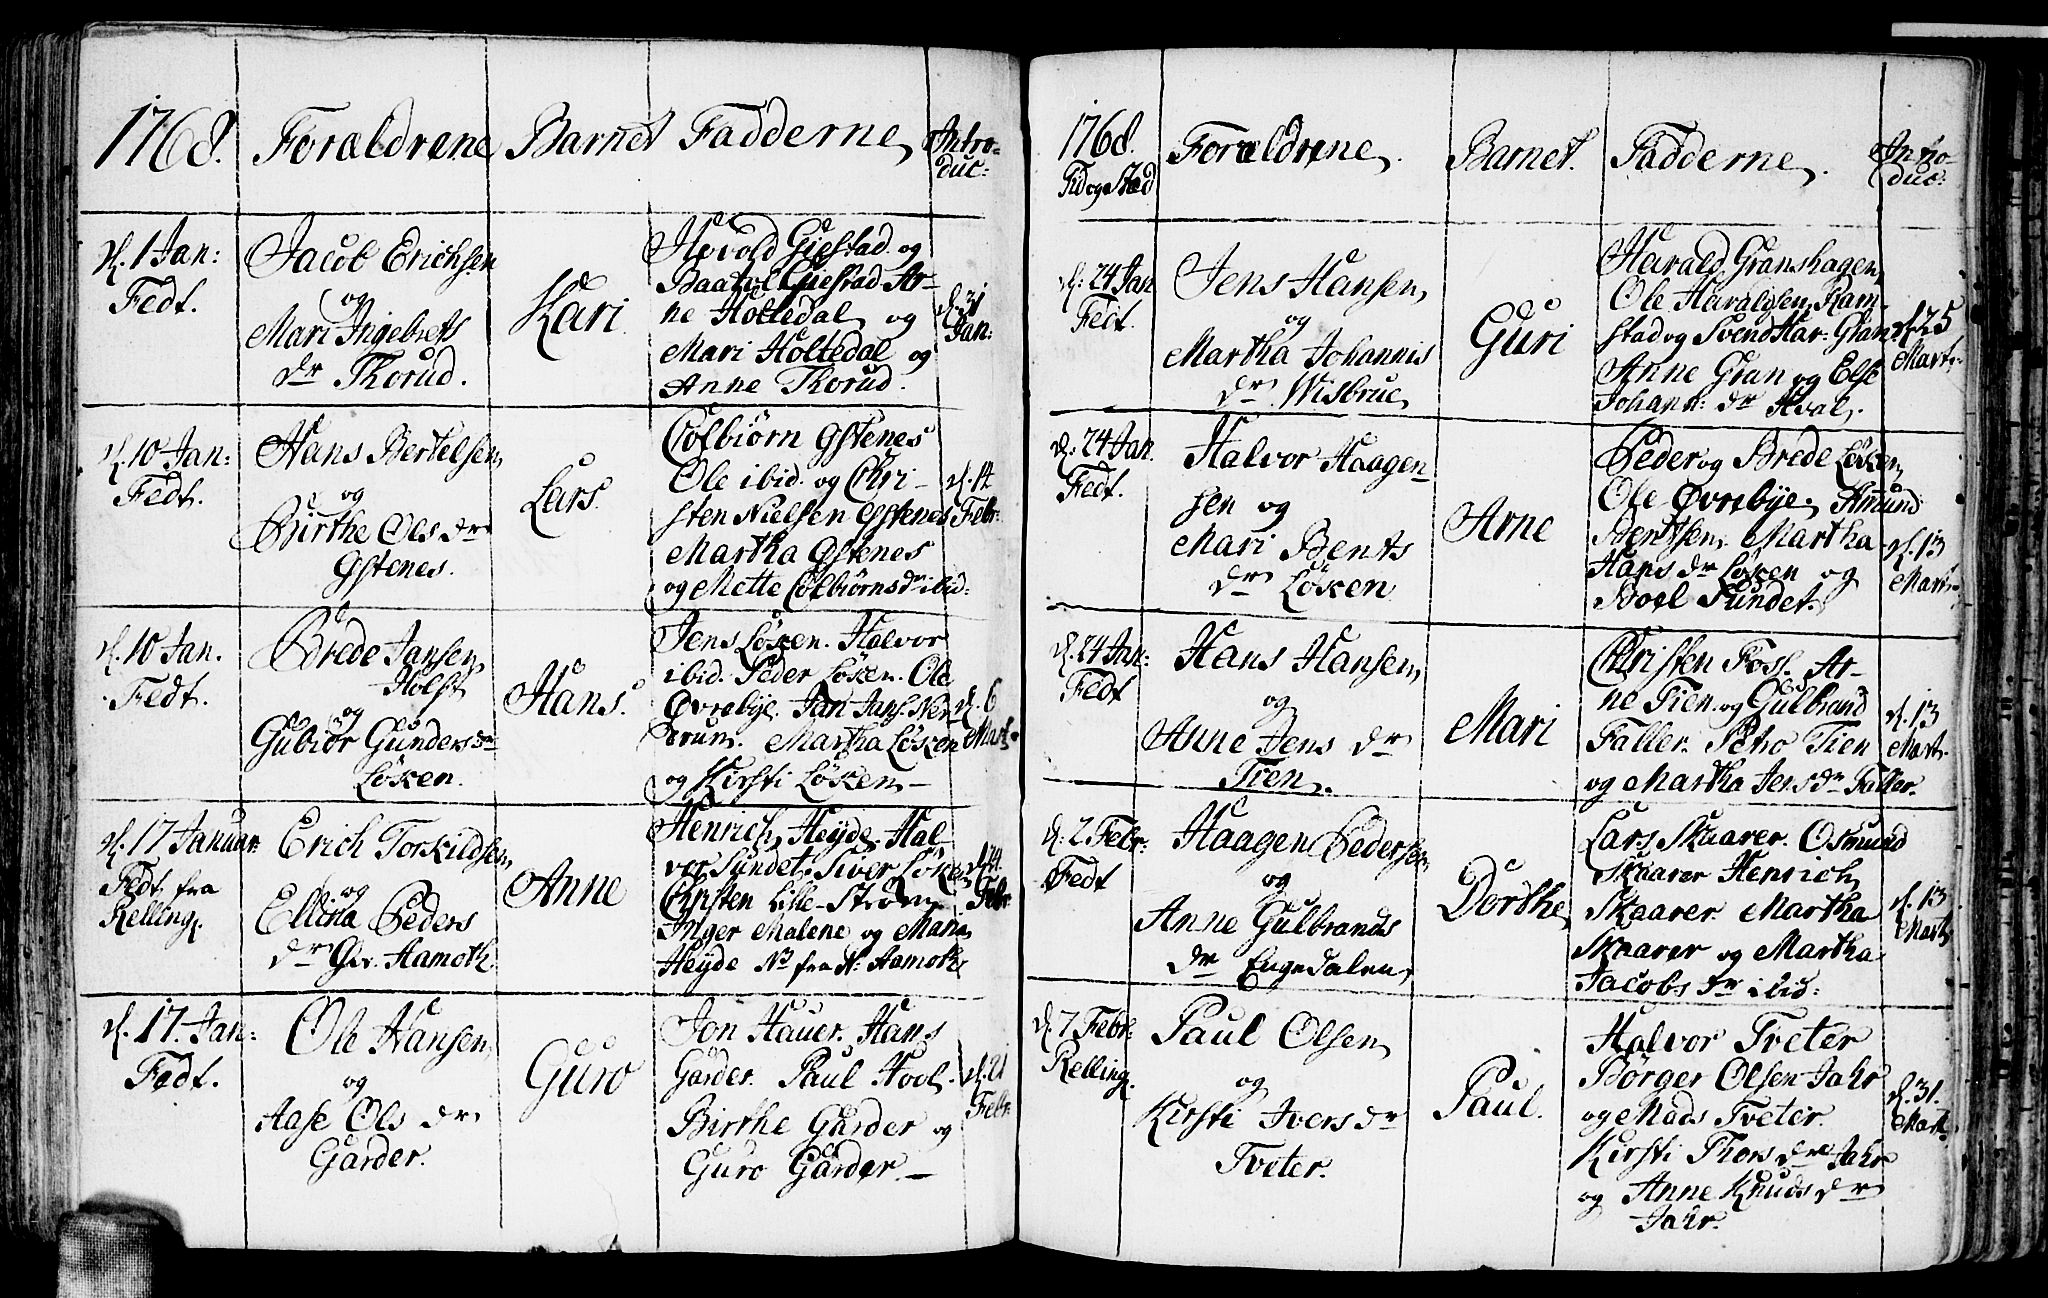 1768. Forældrene Barnet Fadderne Intro-
duc:
d. 1 Jan:
Fedt.
Jacob Erichsen
og
Mari Ingebrets
dr Thorud.
Kari
Hovold Giestad og
Baarol Giestad Ar-
ne Holtedal og
Mari Holtedal og
Anne Thorud.
d. 31
Jan:
d. 10 Jan:
Fedt.
Hans Bertelsen
og
Birthe Ols dr
Gstenes.
Lars.
Colbiørn Gstenes
Ole ibid. og Chri-
sten Nielsen Gstenes
Martha Gstenes
og Mette Colbiørns dr ibid:
d. 14
Febr:
d. 10 Jan.
Fedt.
Brede Jansen
Holst
og
Gubiør Gunders dr
Løken.
Hans.
Jens Løken. Halvor
ibid. Peder Løken. Ole
Øvrebye. Jan Jans. Ner
drum. Martha Løken
og Kirsti Løken –
d. 6
Mart:
d. 17 Januar:
Fedt. fra
Relling.
Erich Torkildsen
og
Ellina Peders
dr Aamoth.
Anne
Henrich Heyde. Hal
vor Sundet. Siver Løken
Christen Lille-Strøm
Inger Malene og Maria
Heyde No fra N: Aamoth
d. 14.
Febr.
d. 17. Jan:
Fedt.
Ole Hansen
og
Aase Ols dr
Garder.
Guro
Jon Hauer. Hans
Garder. Paul Hvol.
Birthe Garder og
Guro Garder –
d. 21
Febr:
1768.
Tid og Sted
Forældrene. Barnet. Fadderne. Intro-
duc:
d: 24 Jan
Fedt.
Jens Hansen
og
Martha Johannis
dr Wisbrue
Guri
Harald Granshagen
Ole Haraldsen Ram-
stad og Svend Har: Gran
Anne Gran og Else
Johann: dr Hval.
d. 25
Mart:
d: 24 Jan.
Fedt.
Halvor Haagen
sen og
Mari Bents
dr Løken
Arne
Peder og Brede Løken
Ole Øvrebye. Amund
Bentsen. Martha
Hans dr Løken og
Boel Sundet.
d. 13
Mart:
d. 24 Jan:
Fedt
Hans Hansen
og
Anne Jens dr
Tien.
Mari
Christen Foss. Ar-
ne Tien og Gulbrand
Faller. Petro Tien
og Martha Jens dr Faller.
d. 13
Mart.
d: 2 Febr:
Fedt
Haagen Pedersen
og
Anne Gulbrands
dr Engedalen
Dorthe
Lars Skaarer. Osmund
Skaarer Henrich
Skaarer. Martha
Skaarer og Martha
Jacobs dr ibid:
d. 13
Mart:
d. 7 Febr:
Relling.
Paul Olsen
og
Kirsti Ivers dr
Tveter.
Paul.
Halvor Tveter
Børger Olsen Jahr
og Mads Tveter.
Kirsti Thors dr Jahr
og Anne Knuds dr
Jahr.
d. 31.
Mart.